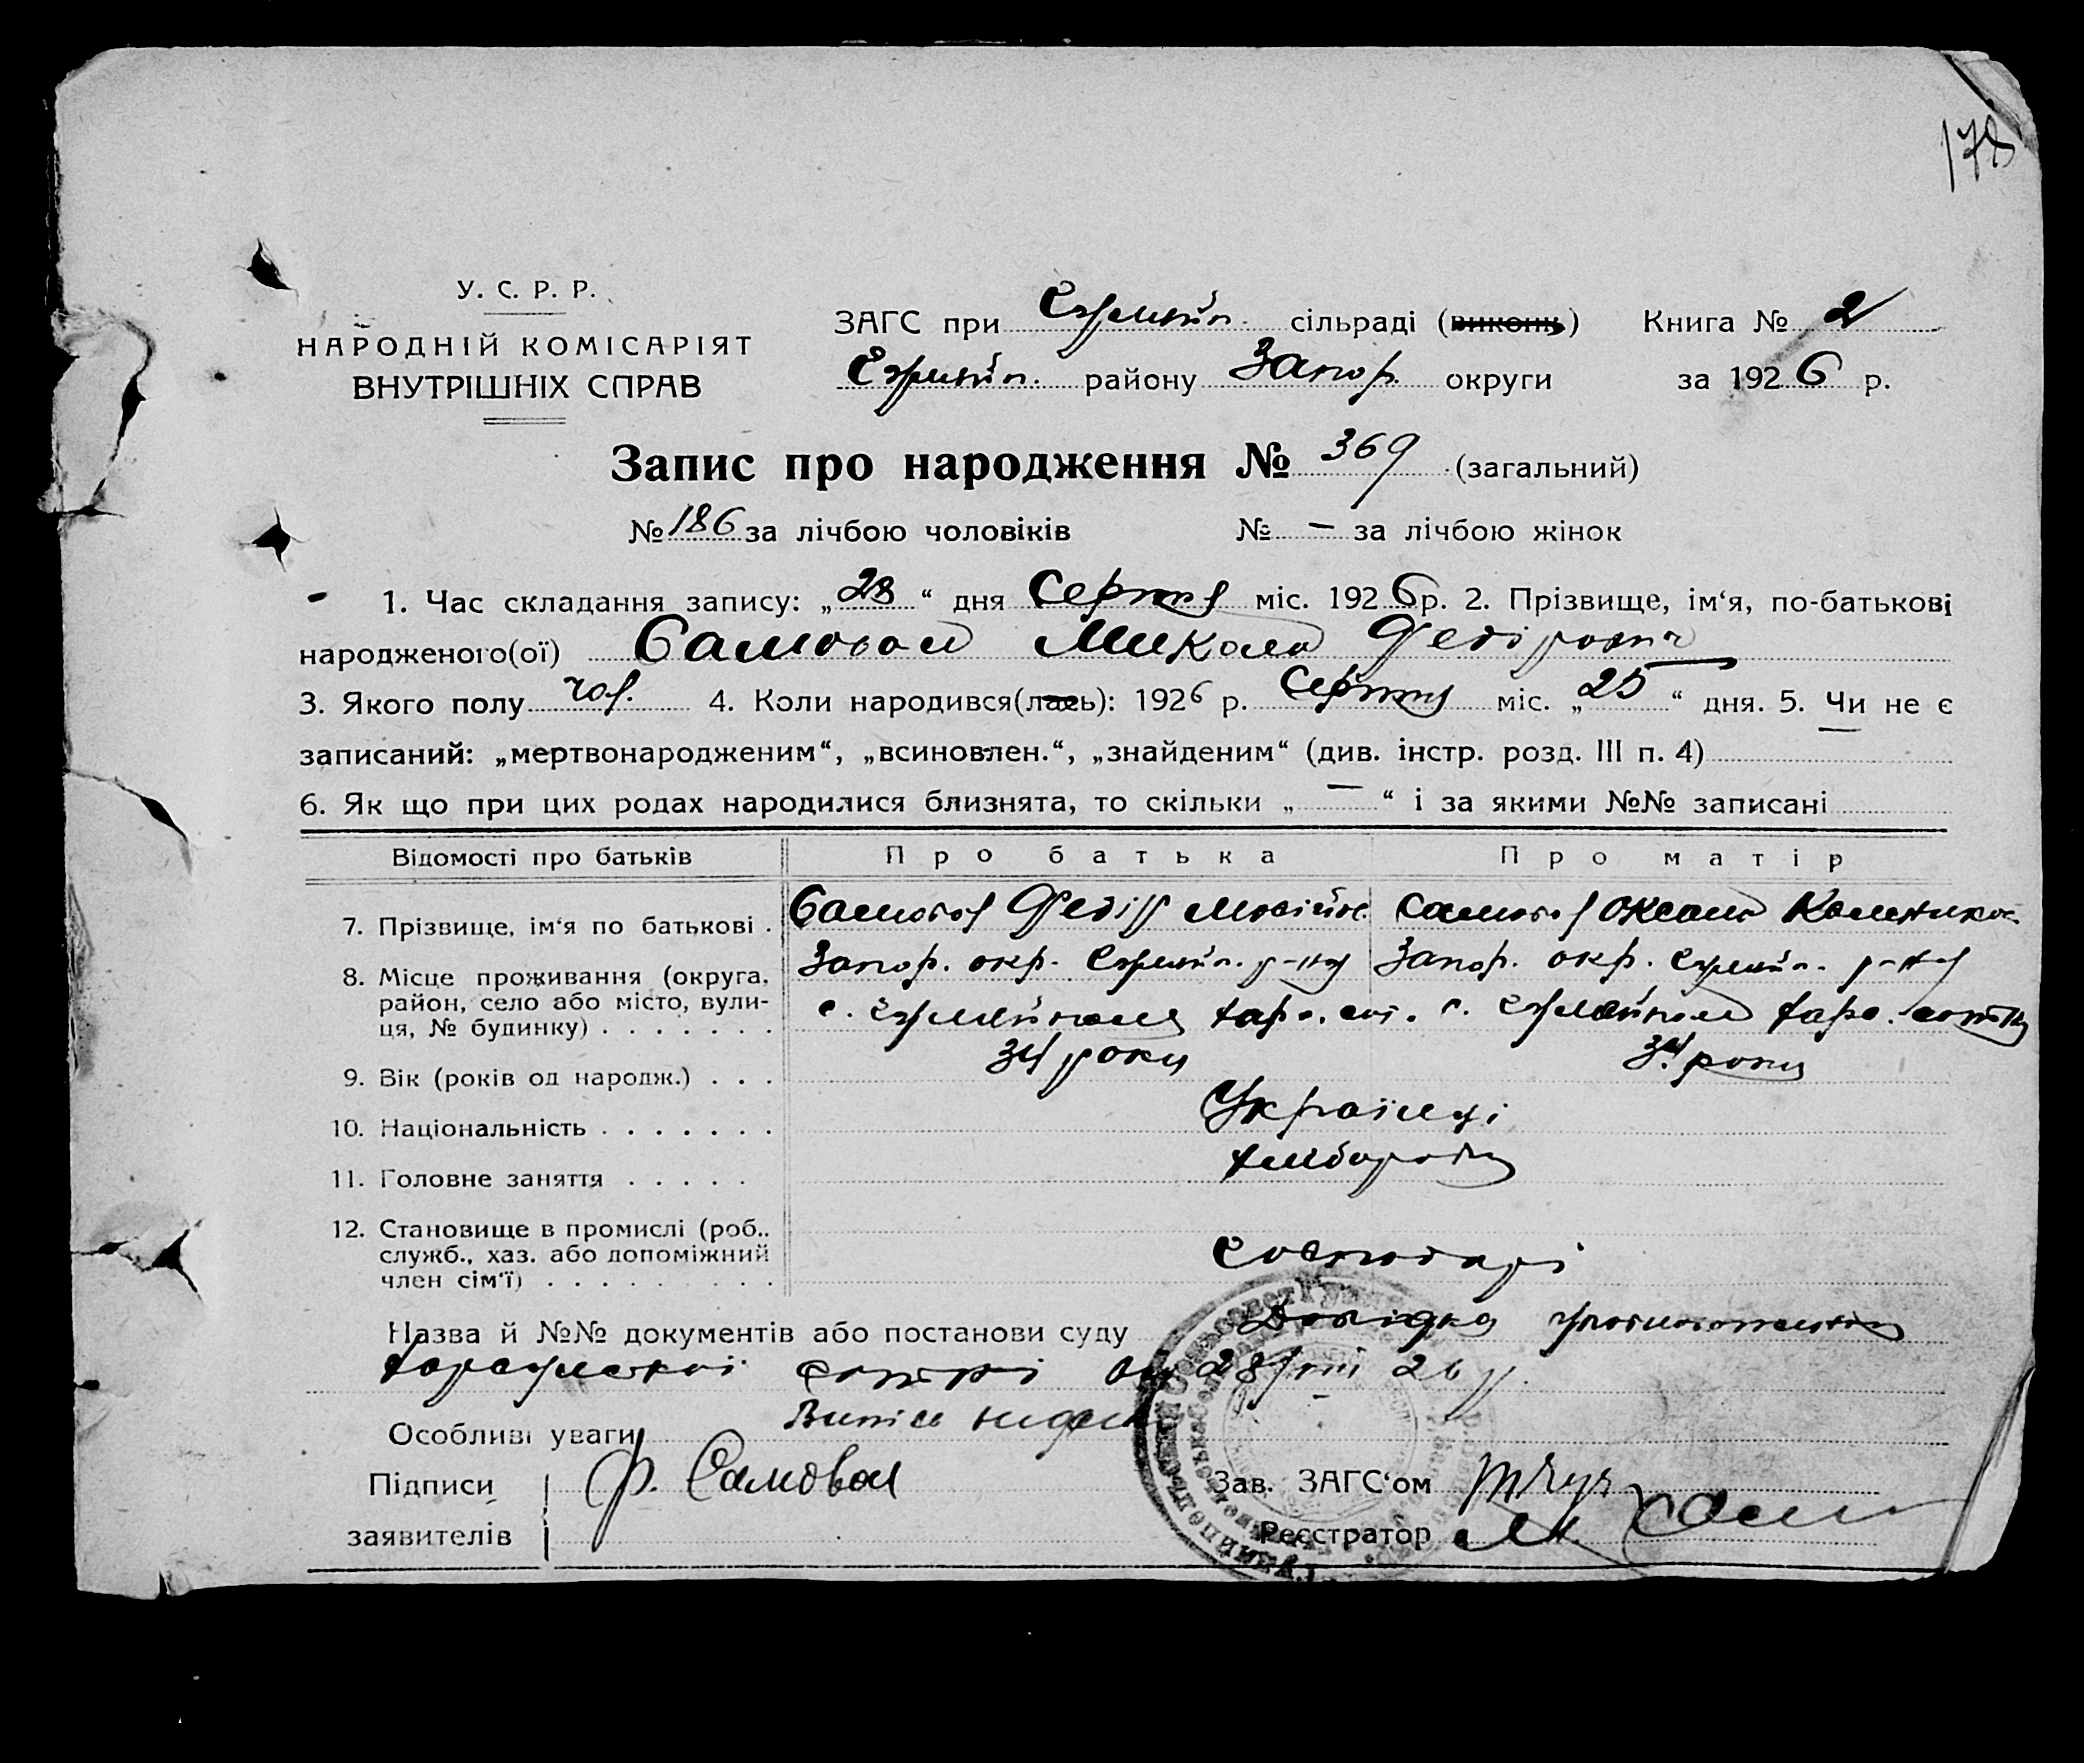 178
У. С. Р. Р.
НАРОДНІЙ КОМІСАРІЯТ
ВНУТРІШНІХ СПРАВ
ЗАГС при Гуляйп. сільраді (виконк) Книга № 2
Гуляйп. району Запор. округи за 1926 р.
Запис про народження № 369 (загальний)
№ 186 за лічбою чоловіків № — за лічбою жінок
1. Час складання запису: „28“ дня Серпня міс. 1926 р. 2. Прізвище, ім‘я, по-батькові
народженого(ої) Самовол Микола Федірович
3. Якого полу чол. 4. Коли народився(лась): 1926 р. Серпня міс. „25“ дня. 5. Чи не є
записаний: „мертвонародженим“, „всиновлен.“, „знайденим“ (див. інстр. розд. III п. 4)
6. Як що при цих родах народилися близнята, то скільки „—“ і за якими №№ записані
Відомості про батьків Про батька Про матір
7. Прізвище, ім‘я по батькові . Самовол Федір Мосійов. Самовол Оксана
8. Місце проживання (округа, Запор. окр. Гуляйп. р-ну Запор. окр. Гуляйп. р-ну
район, село або місто, вули- с. Гуляйполе с. Гуляйполе
ця, № будинку) . . . . . . .
9. Вік (років од народж.) . . . 34 роки 34 роки
10. Національність . . . . . . . Українці
11. Головне заняття . . . . . хлібороби
12. Становище в промислі (роб..
служб., хаз. або допоміжний Господарі
член сім‘ї) . . . . . . . . .
Назва й №№ документів або постанови суду Довідка Уповноваженого
сотні від 28/VIII 26 р.
Особливі уваги Випис видан
Підписи Ф. Самовол Зав. ЗАГС‘ом
заявителів Реєстратор М.